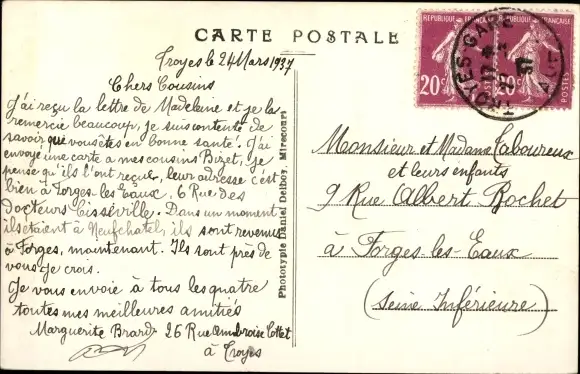 CARTE POSTALE
Troyes le 24 Mars 1937
Chers Cousins
J'ai reçu la lettre de Madeleine et je la
remercie beaucoup, je suis contente de
savoir que vous êtes en bonne santé. J'ai
envoyé une carte a mes cousins Bizet, je
pense qu'ils l'ont reçue, leur adresse c'est
bien à Forges-les-Eaux, 6 Rue des
Docteurs-Cisséville. Dans un moment
ils étaient à Neufchatel, ils sont revenus
à Forges, maintenant. Ils sont près de
vous je crois.
Je vous envoie à tous les quatre
toutes mes meilleures amitiés
Marguerite Brard 26 Rue Ambroise Cottet
à Troyes
Phototypie Daniel Delboy, Mirecourt
REPUBLIQUE FRANÇAISE
20c
POSTES
REPUBLIQUE FRANÇAISE
20c
POSTES
TROYES-GARE
AUBE
Monsieur et Madame Taboureux
et leurs enfants
9 Rue Albert Bochet
à Forges-les-Eaux
(Seine Inférieure)